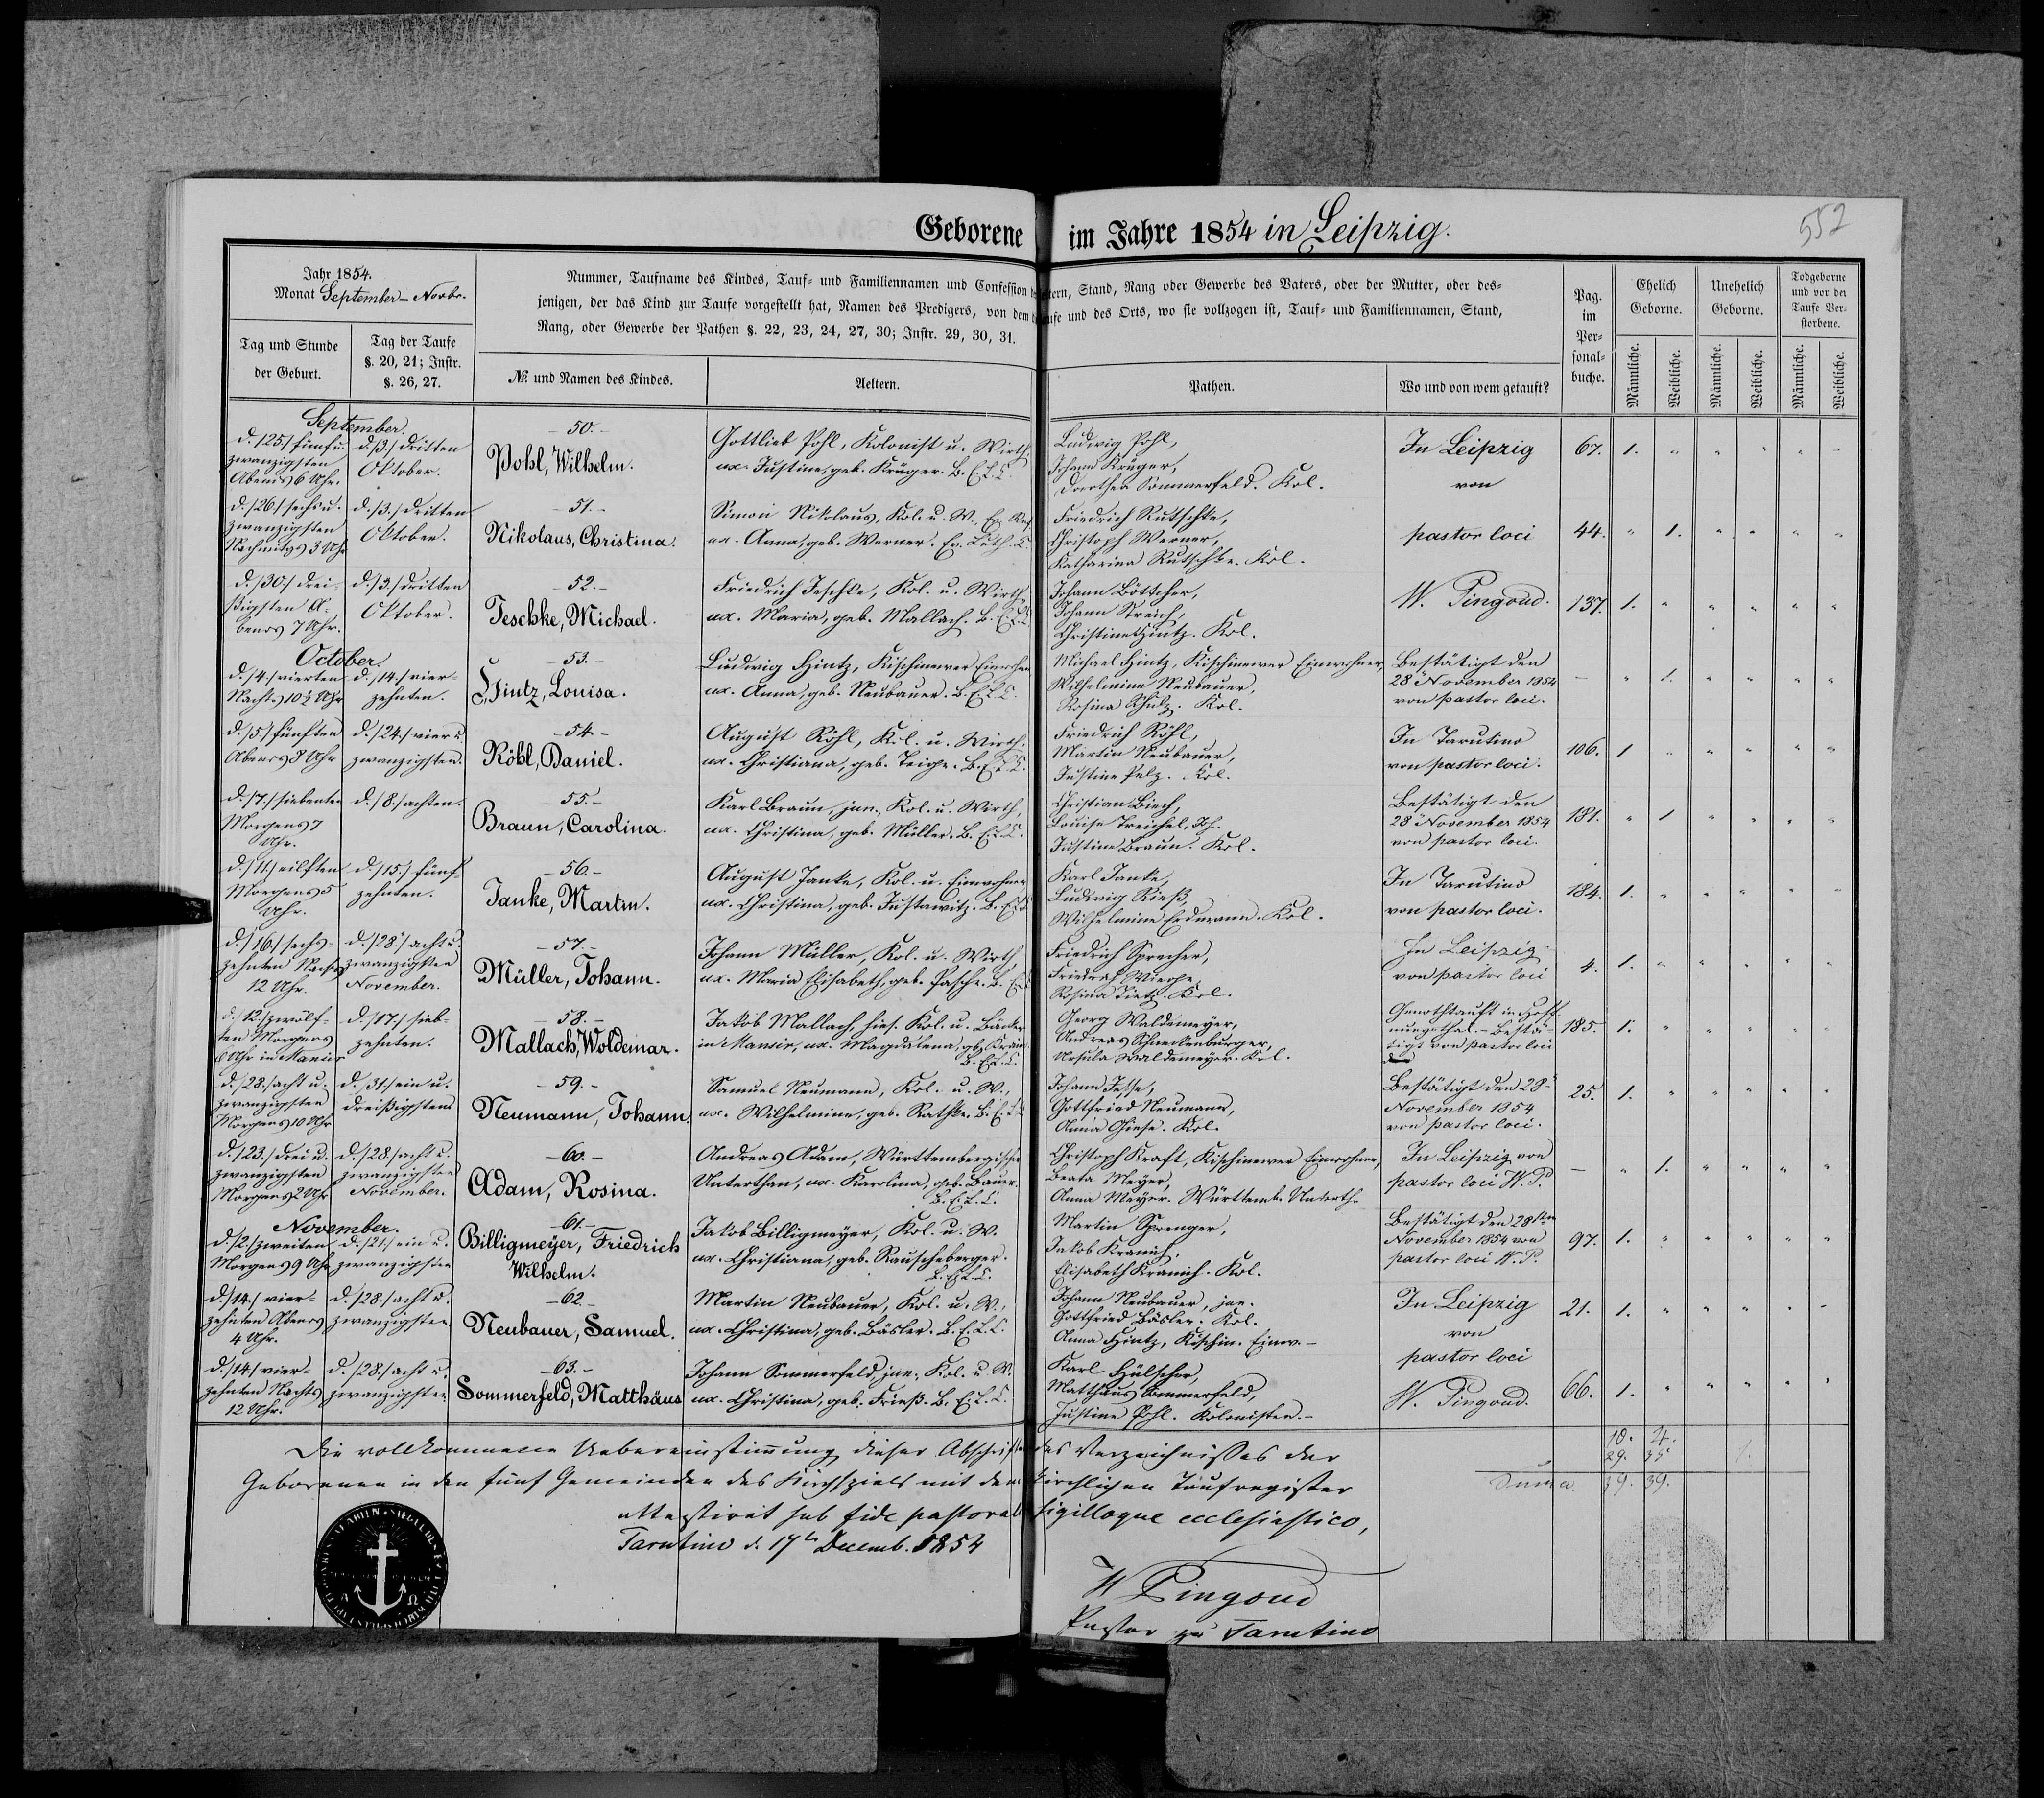 552
Geborene im Jahre 1854 in Leipzig.
Jahr 1854.
Monat September – Novbr.
Nummer, Taufname des Kindes, Tauf- und Familiennamen und Confession der Aeltern, Stand, Rang oder Gewerbe des Vaters, oder der Mutter, oder des-
jenigen, der das Kind zur Taufe vorgestellt hat, Namen des Predigers, von dem die Taufe und des Orts, wo sie vollzogen ist, Tauf- und Familiennamen, Stand,
Rang, oder Gewerbe der Pathen §. 22, 23, 24, 27, 30; Instr. 29, 30, 31.
Tag und Stunde
der Geburt.
Tag der Taufe
§. 20, 21; Instr.
§. 26, 27.
№ und Namen des Kindes.
Aeltern.
Pathen.
Wo und von wem getauft?
Pag.
im
Per-
sonal-
buche.
Ehelich
Geborne.
Unehelich
Geborne.
Todgeborne
und vor der
Taufe Ver-
storbene.
Männliche.
Weibliche.
Männliche.
Weibliche.
Männliche.
Weibliche.
September.
d. /25./ fünfu.
zwanzigsten
Abends 6 Uhr.
d. /3./ dritten
Oktober.
– 50. –
Pohl, Wilhelm.
Gottlieb Pohl, Kolonist u. Wirth,
ux. Justine, geb. Krüger. B. E. L. C.
Ludwig Pohl,
Johann Krüger,
Dorothea Sommerfeld. Kol.
In Leipzig
von
67. 1. " " " " "
d. /26./ sechsu.
zwanzigsten
Nachmitgs 3 Uhr
d. /3./ dritten
Oktober.
– 51. –
Nikolaus, Christina.
Simon Nikolaus, Kol. u. W., Ev. Ref.
ux. Anna, geb. Werner. Ev. Luth. C.
Friedrich Rutschke,
Christoph Werner,
Katharina Rutschke. Kol.
pastor loci
44. " 1. " " " "
d. /30./ drei-
ßigsten A-
bends 7 Uhr.
d. /3./ dritten
Oktober.
– 52. –
Jeschke, Michael.
Friedrich Jeschke, Kol. u. Wirth,
ux. Maria, geb. Mallach. B. E. L. C.
Johann Böttcher,
Johann Streich,
Christine Hintz. Kol.
W. Pingoud.
137. 1. " " " " "
October.
d. /4./ vierten
Nachts 10½ Uhr
d. /14./ vier-
zehnten.
– 53. –
Hintz, Louisa.
Ludwig Hintz, Kischinewer Einwohner
ux. Anna, geb. Neubauer. B. E. L. C.
Michael Hintz, Kischinewer Einwohner,
Wilhelmine Neubauer,
Rosina Schulz. Kol.
Bestätigt den
28 November 1854
von pastor loci.
– " 1. " " " "
d. /5./ fünften
Abends 8 Uhr
d. /24./ vier u.
zwanzigsten.
– 54. –
Röhl, Daniel.
August Röhl, Kol. u. Wirth.
ux. Christiana, geb. Teige. B. E. L. C.
Friedrich Röhl,
Martin Neubauer,
Justine Pelz. Kol.
In Tarutino
von pastor loci.
106. 1 " " " " "
d. /7./ siebenten
Morgens 7
Uhr.
d. /8./ achten.
– 55. –
Braun, Carolina.
Karl Braun, jun., Kol. u. Wirth,
ux. Christina, geb. Müller. B. E. L. C.
Christian Biech,
Louise Treichel,
Justine Braun. Kol.
Bestätigt den
28 November 1854
von pastor loci.
181. " 1 " " " "
d. /11./ eilften
Morgens 5
Uhr.
d. /15./ fünf-
zehnten.
– 56. –
Janke, Martin.
August Janke, Kol. u. Einwohner
ux. Christina, geb. Justawitz. B. E. L. C.
Karl Janke,
Ludwig Rieß,
Wilhelmine Erdmann. Kol.
In Tarutino
von pastor loci.
184. 1. " " " " "
d. /16./ sechs-
zehnten Nachts
12 Uhr.
d. /28./ acht u.
zwanzigsten
November.
– 57. –
Müller, Johann.
Johann Müller, Kol. u. Wirth
ux. Maria Elisabeth, geb. Pasche. B. E. L. C.
Friedrich Sprecher,
Friedrich Wiege,
Rosina Dietz. Kol.
In Leipzig
von pastor loci
4. 1. " " " " "
d. /12./ zwölf-
ten Morgens
6 Uhr in Mansir
d. /17./ sieb-
zehnten.
– 58. –
Mallach, Woldemar.
Jakob Mallach, hies. Kol. u. Bäcker
in Mansir, ux. Magdalena, gb.
B. E. L. C.
Georg Waldemeyer,
Andreas Schneckenburger,
Ursula Waldemeyer. Kol.
Genothtauft in Hoff-
nungsthal. – Bestä-
tigt von pastor loci
185. 1. " " " " "
d. /28./ acht u.
zwanzigsten
Morgens 10 Uhr
d. /31./ ein u.
dreißigsten
– 59. –
Neumann, Johann.
Samuel Neumann, Kol. u. W.,
ux. Wilhelmine, geb. Rathke. B. E. L. C.
Johann Jesse,
Gottfried Neumann,
Anna Giese. Kol.
Bestätigt den 28
November 1854
von pastor loci.
25. 1. " " " " "
d. /23./ drei u.
zwanzigsten
Morgens 2 Uhr
d. /28./ acht u.
zwanzigsten
November.
– 60. –
Adam, Rosina.
Andreas Adam, Württembergischer
Unterthan, ux. Karolina, geb. Bauer.
B. E. L. C.
Christoph Kraft, Kischinewer Einwohner,
Beata Meyer,
Anna Meyer. Württemb. Unterth.
In Leipzig von
pastor loci W. P.
– " 1. " " " "
November.
d. /2./ zweiten
Morgens 9 Uhr
d. /21./ ein u.
zwanzigsten
– 61. –
Billigmeyer, Friedrich
Wilhelm.
Jakob Billigmeyer, Kol. u. W.
ux. Christiana, geb. Rauscheberger.
B. E. L. C.
Martin Sprenger,
Jakob Kranich,
Elisabeth Kranich. Kol.
Bestätigt den 28sten
November 1854 von
pastor loci W. P.
97. 1. " " " " "
d. /14./ vier-
zehnten Abends
4 Uhr.
d. /28./ acht u.
zwanzigsten
– 62. –
Neubauer, Samuel.
Martin Neubauer, Kol. u. W.,
ux. Christina, geb. Bäsler. B. E. L. C.
Johann Neubauer, jun.
Gottfried Bäsler. Kol.
Anna Hintz, Kischin. Einw. –
In Leipzig
von
21. 1. " " " " "
d. /14./ vier-
zehnten Nachts
12 Uhr.
d. /28./ acht u.
zwanzigsten
– 63. –
Sommerfeld, Matthäus
Johann Sommerfeld, jun., Kol. u W.
ux. Christina, geb. Frieß. B. E. L. C.
Karl Hülscher,
Matthäus Sommerfeld,
Justine Pohl. Kolonisten. –
pastor loci
W. Pingoud.
66. 1. " " " " "
10. 4.
29. 35 1.
Suma 39. 39.
Die vollkommene Uebereinstimmung dieser Abschrift des Verzeichnisses der
Geborenen in den fünf Gemeinden des Kirchspiels mit dem kirchlichen Taufregister
attestirt sub fide pastorali sigilloque ecclesiastico,
Tarutino d. 17te Decemb. 1854
W Pingoud
Pastor zu Tarutino
Α Ω